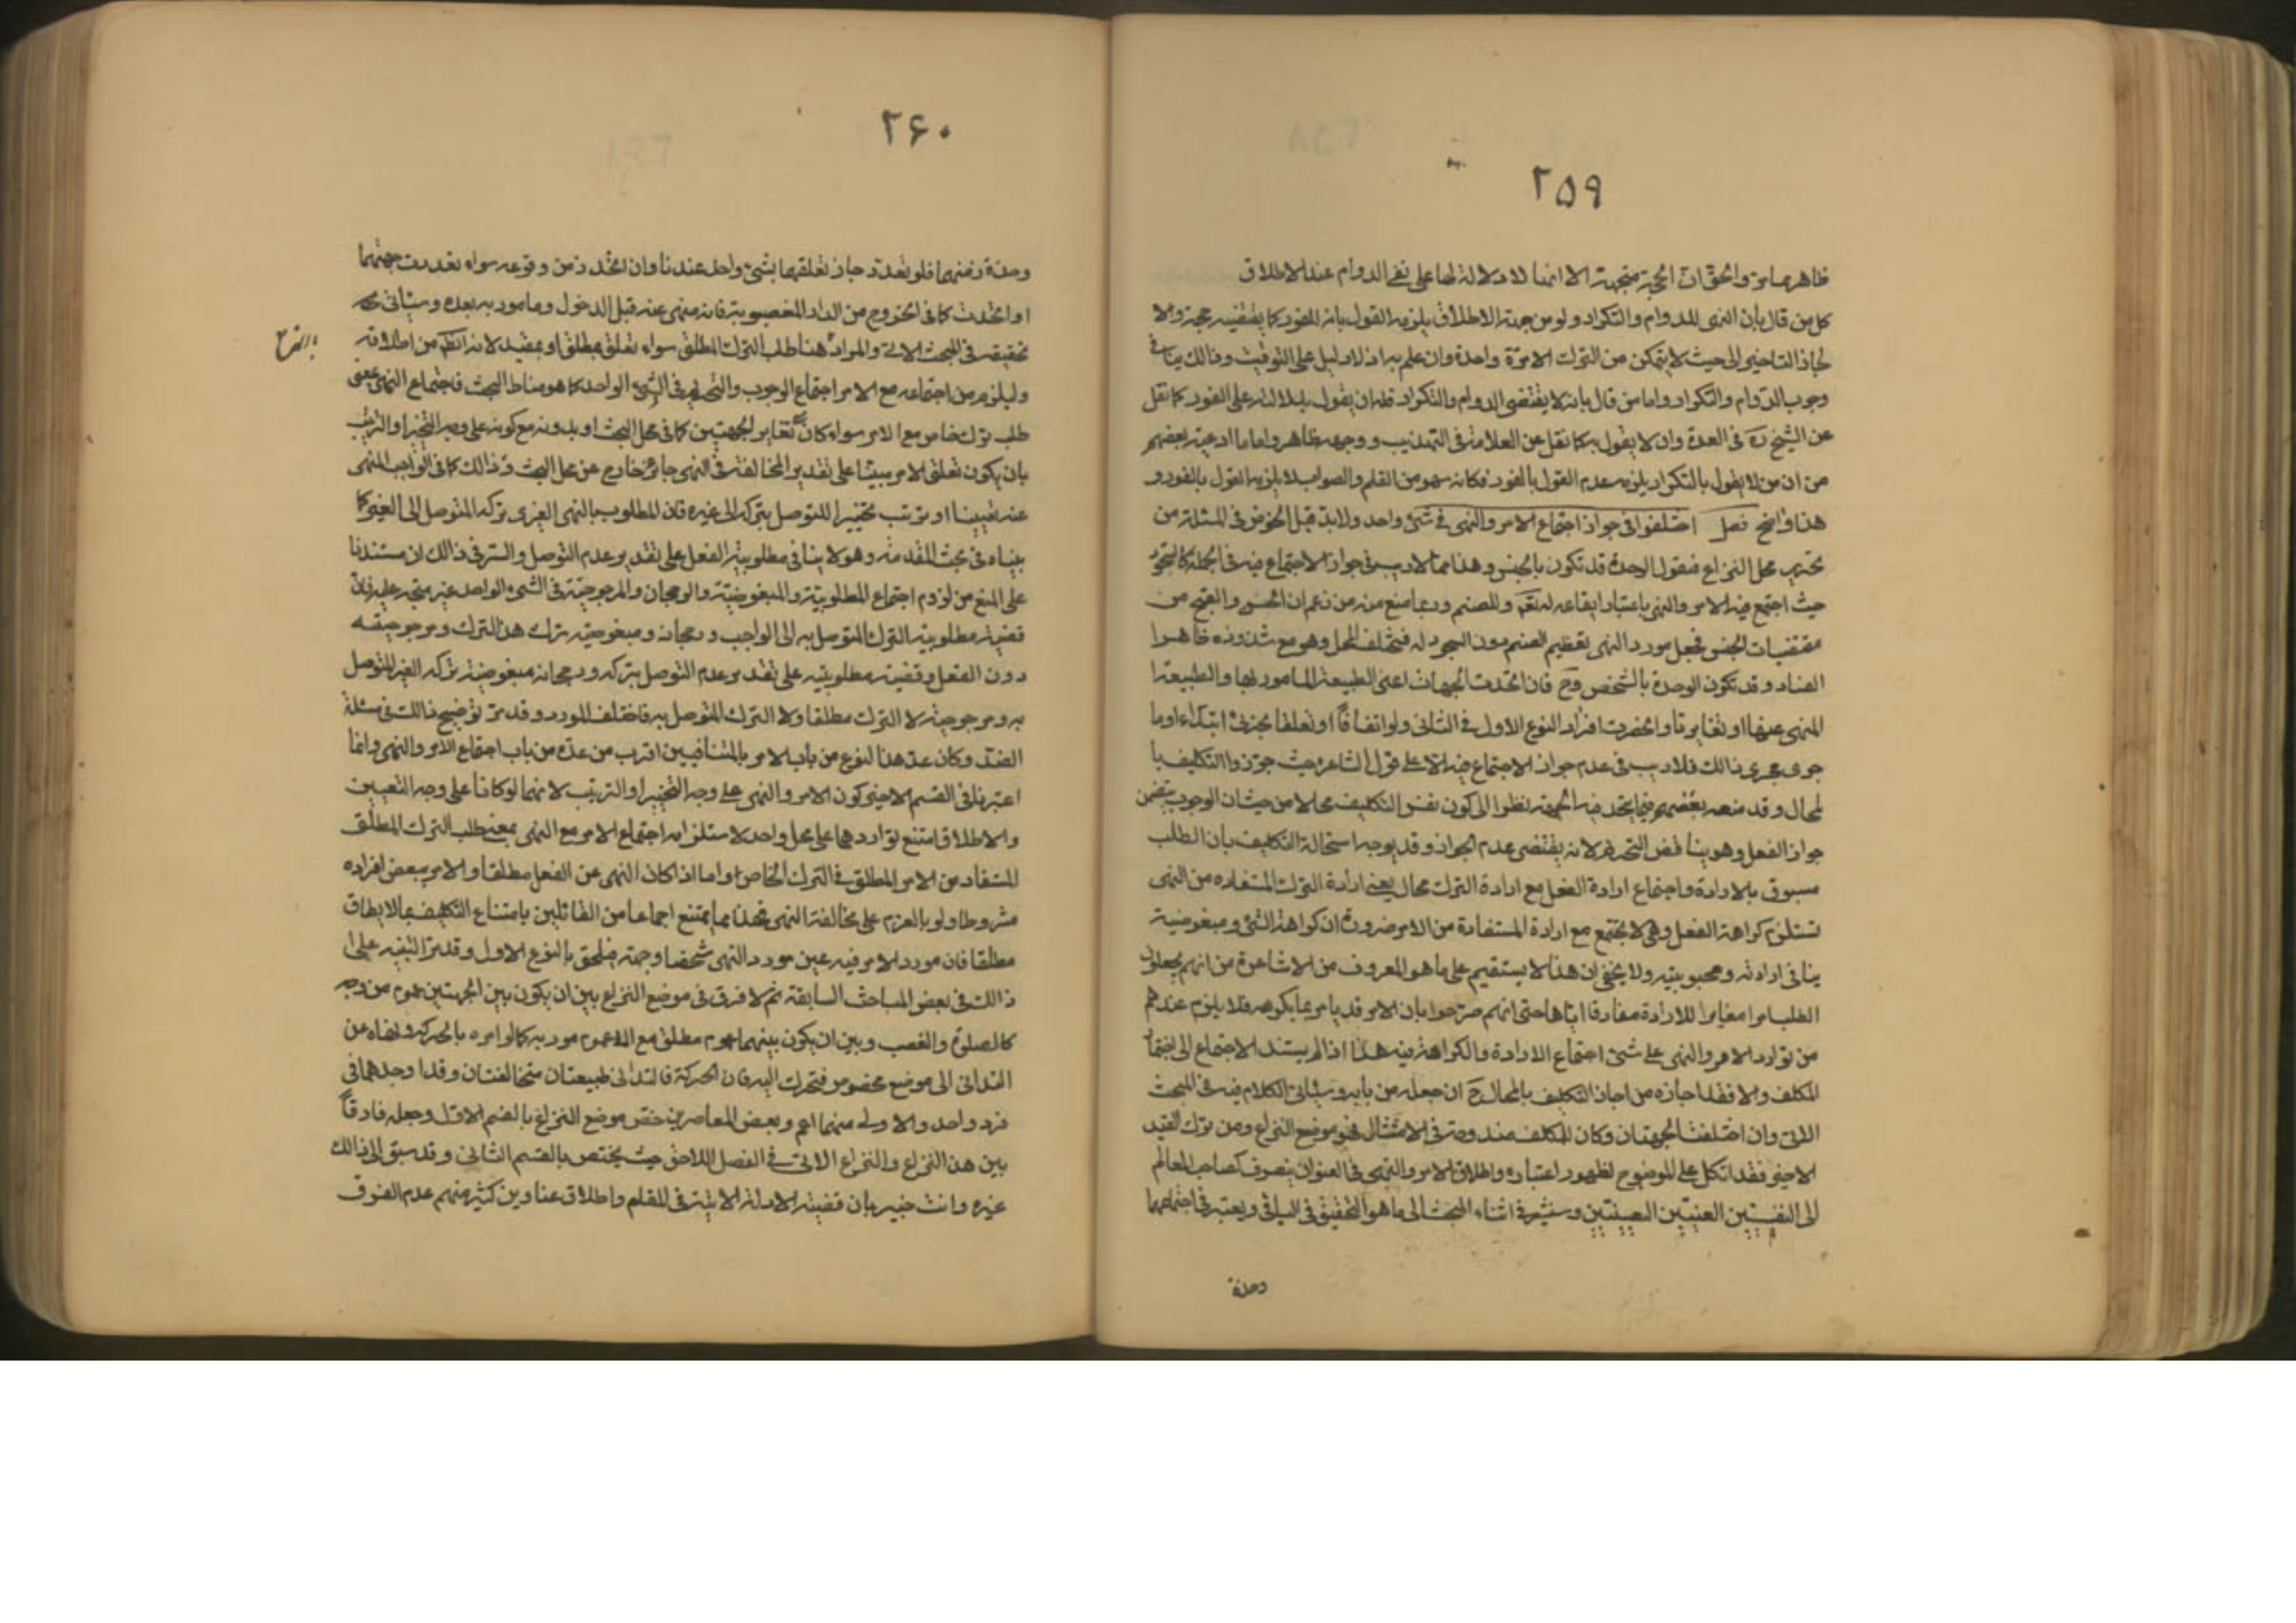 ۲۵۹
ظاهر مما مر والحق ان الحجة متجهة الا انها لا دلالة لها على نفى الدوام عند الاطلاق
كل من قال بان النهى للدوام والتكرار ولو من جهة الاطلاق يلزمه القول بانه للفور كما يقتضيه حجته والا
لجاز التاخير الى حيث لا يتمكن من الترك الا مرة واحدة وان علم به اذ لا دليل على التوقيت وذالك ينافى
وجوب الدوام والتكرار واما من قال بانه لا يقتضى الدوام والتكرار فله ان يقول بدلالته على الفور كما نقل
عن الشيخ ره فى العدة وان لا يقول به كما نقل عن العلامة فى التهذيب ووجهه ظاهر واما ما ادعيه بعضهم
من ان من لا يقول بالتكرار يلزمه عدم القول بالفور فكانه سهو من القلم والصواب لا يلزمه القول بالفور و
هذا واضح فصل اختلفوا فى جواز اجتماع الامر والنهى فى شئ واحد ولا بد قبل الخوض فى المسئلة من
تحرير محل النزاع فنقول الوحدة قد تكون بالجنس وهذا مما لا ريب فى جواز الاجتماع فيه فى الجملة كالسجود
حيث اجتمع فيه الامر والنهى باعتبار ايقاعه له تعالى وللصنم وربما منع منه من زعم ان الحسن والقبح من
مقتضيات الجنس فجعل مورد النهى تعظيم الصنم دون السجود له فيختلف المحل وهو مع شذوذه ظاهر
الفساد وقد تكون الوحدة بالشخص وح فان اتحدت الجهات اعنى الطبيعة المامور بها والطبيعة
المنهى عنها او تغايرتا وانحصرت افراد النوع الاول فى الثانى ولو اتفاقا او تعلقا بجزئى ابتداء او ما
جرى مجرى ذالك فلا ريب فى عدم جواز الاجتماع فيه الا على قول الشاعرة حيث جوزوا التكليف با
لمحال وقد منعه بعضهم فيما يتحد فيه الجهة نظرا الى كون نفس التكليف محالا من حيث ان الوجوب يتضمن
جواز الفعل وهو يناقض التحريم لانه يقتضى عدم الجواز وقد يوجه استحالة التكليف بان الطلب
مسبوق بالارادة واجتماع ارادة الفعل مع ارادة الترك محال يعنى ارادة الترك المستفاده من النهى
تستلزم كراهة الفعل وهى لا يجتمع مع ارادة المستفادة من الامر ضرورة ان كراهة الشئ ومبغوضية
ينافى ارادته ومحبوبيته ولا يخفى ان هذا لا يستقيم على ما هو المعروف من الاشاعرة من انهم يجعلون
الطلب امرا مغايرا للارادة مفارقا اياها حتى انهم صرحوا بان الامر قد يامر بما يكرهه فلا يلزم عندهم
من توارد الامر والنهى على شئ اجتماع الارادة والكراهة فيه هذا اذا لم يستند الاجتماع الى اختيار
المكلف والا فقد اجازه من اجاز التكليف بالمحال ح ان جعله من بابه وسياتى الكلام فيه فى المبحث
الاتى وان اختلفت الجهتان وكان للمكلف مندوحة فى الامتثال فهو موضع النزاع ومن ترك القيد
الاخير فقد اتكل على الوضوح لظهور اعتباره واطلاق الامر والنهى فى العنوان ينصرف كصاحب المعالم
الى النفسيين العينيين التعيينيين وسنشير فى اثناء المبحث الى ما هو التحقيق فى الباقى ويعتبر فى اجتماعهما
وحدة
۲۶۰
وحدة زمنهما فلو تعدد جاز تعلقهما بشئ واحد عندنا وان اتحد زمن وقوعه سواء تعددت جهتهما
او اتحدت كما فى الخروج من الدار المغصوبة فانه منهى عنه قبل الدخول ومامور به بعده وسياتى
تحقيقه فى المبحث الاتى والمراد هنا طلب الترك المطلق سواء تعلق بمطلق او بمقيد لانه الظاهر من اطلاقه
وليلزم من اجتماعه مع الامر اجتماع الوجوب والتحريم فى الشئ الواحد كما هو مناط البحث فاجتماع النهى بمعنى
طلب ترك خاص مع الامر سواء كان لتغاير الجهتين كما فى محل البحث او بدونه مع كونه على وجه التخيير او الترتب
بان يكون تعلق الامر مبنيا على تقدير المخالفة فى النهى جائز خارج عن محل البحث وذالك كما فى الواجب المنهى
عنه تعيينا او ترتب تخييرا للتوصل بتركه الى غيره فان المطلوب بالنهى الغيرى تركه المتوصل الى الغير كما
بيناه فى بحث المقدمة وهو لا ينافى مطلوبية الفعل على تقدير عدم التوصل والسر فى ذالك ان مستندنا
على المنع من لزوم اجتماع المطلوبية والمبغوضية والرجحان والمرجوحية فى الشئ الواحد غير متجه عليه فان
قضية مطلوبية الترك المتوصل به الى الواجب ورجحانه ومبغوضية ترك هذا الترك ومرجوحيته
دون الفعل وقضية مطلوبيته على تقدير عدم التوصل بتركه ورجحانه مبغوضية تركه الغير المتوصل
به ومرجوحيته لا الترك مطلقا ولا الترك المتوصل به فاختلف المورد وقد مر توضيح ذالك فى مسئلة
الضد وكان عد هذا النوع من باب الامر بالمتنافيين اقرب من عده من باب اجتماع الامر والنهى وانما
اعتبرنا فى القسم الاخير كون الامر والنهى على وجه التخيير او الترتيب لانهما لو كانا على وجه التعيين
والاطلاق امتنع تواردهما على محل واحد لاستلزامه اجتماع الامر مع النهى بمعنى طلب الترك المطلق
المستفاد من الامر المطلق فى الترك الخاص واما اذا كان النهى عن الفعل مطلقا والامر ببعض افراده
مشروطا ولو بالعزم على مخالفة النهى فهذا مما يمتنع اجماعا من القائلين بامتناع التكليف بما لا يطاق
مطلقا فان مورد الامر فيه عين مورد النهى شخصا وجهة فيلحق بالنوع الاول وقد مر التنبيه على
ذالك فى بعض المباحث السابقة ثم لا فرق فى موضع النزاع بين ان يكون بين الجهتين عموم من وجه
كالصلوة والغصب وبين ان يكون بينهما عموم مطلق مع عموم مورد به كما لو امره بالحركة ونهاه عن
التدانى الى موضع مخصوص فتحرك اليه فان الحركة فالتدانى طبيعتان متخالفتان وقد اوجدهما فى
فرد واحد والاولى منهما اعم وبعض المعاصرين خص موضع النزاع بالقسم الاول وجعله فارقا
بين هذا النزاع والنزاع الاتى فى الفصل اللاحق حيث يختص بالقسم الثانى وقد سبق الى ذالك
غيره وانت خبير بان قضية الادلة الاتية فى المقام واطلاق عناوين كثير منهم عدم الفرق